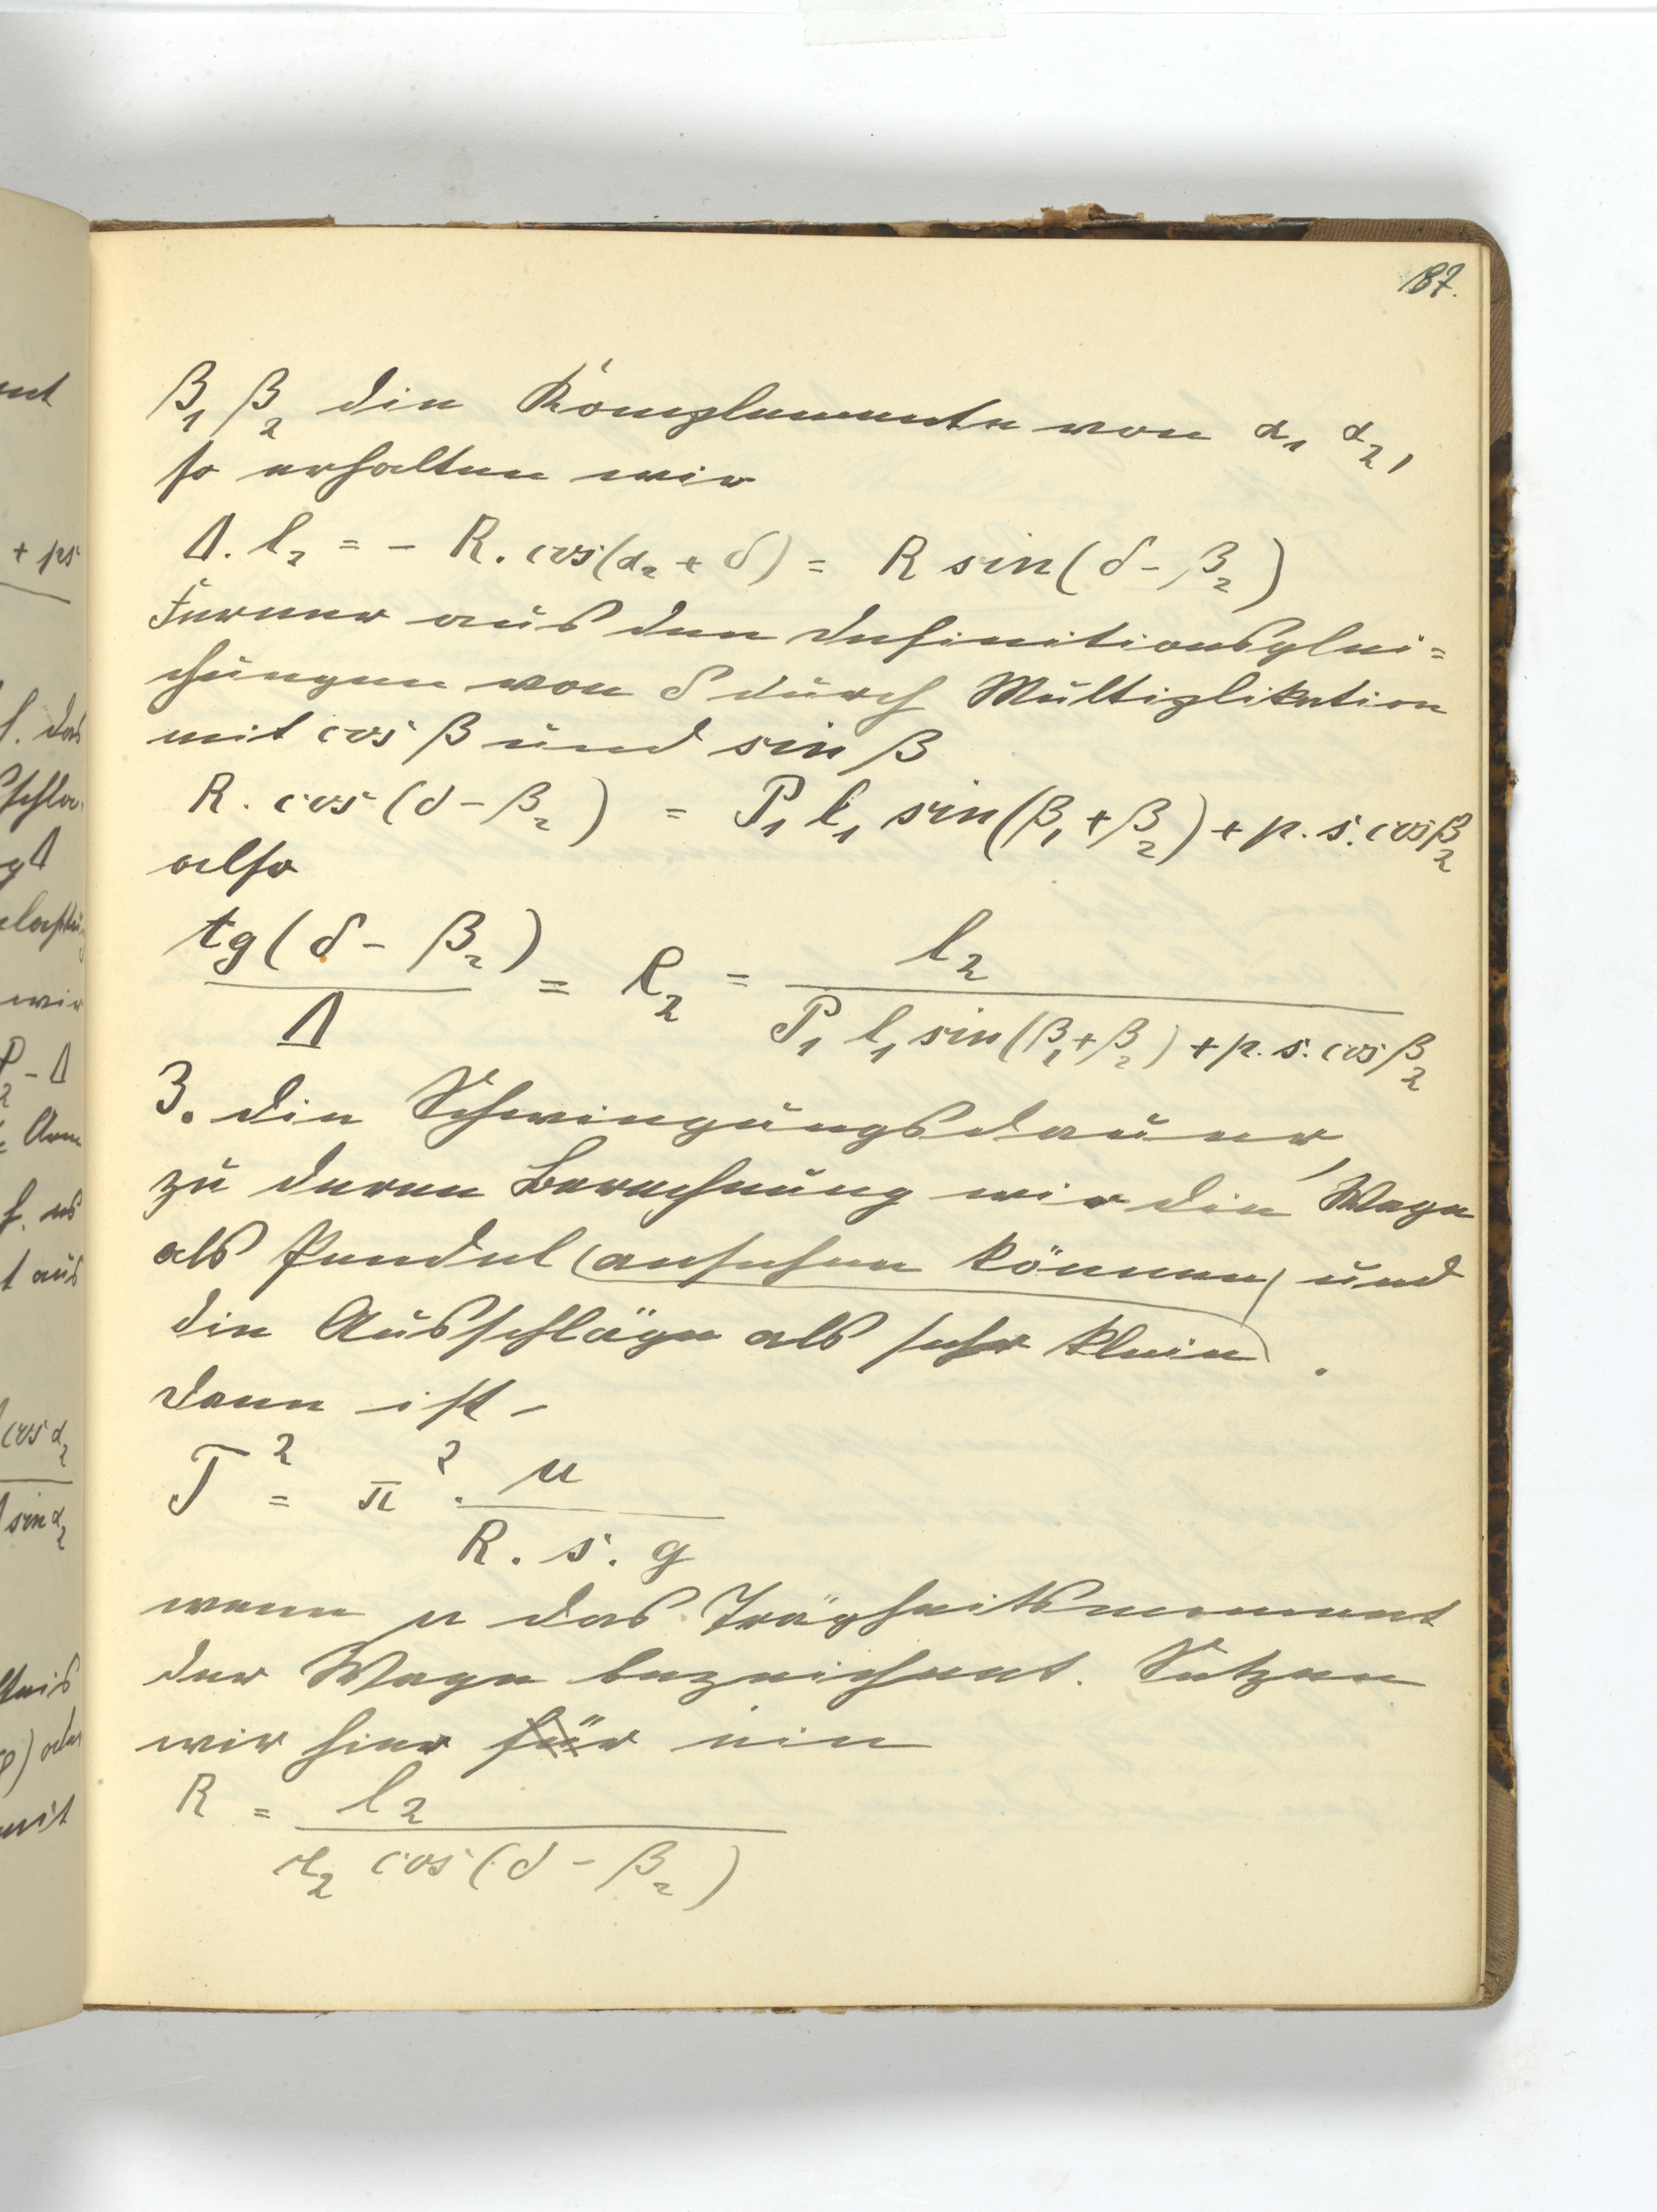 187.
β₁ β₂ die Komplemente von α₁ α₂,
so erhalten wir
Δ. l₂ = - R. cos(α₂ + δ) = R sin(δ - β₂)
Ferner aus den Definitionsglei=
chungen von δ durch Multiplikation
mit cos β und sin β
R. cos(δ - β₂) = P₁ l₁ sin(β₁ + β₂) + p. s. cos β₂
also
tg(δ - β₂) / Δ = l₂ / (P₁ l₁ sin(β₁ + β₂) + p. s. cos β₂)
3. die Schwingungsdauer,
zu deren Berechnung wir die Wage
als Pendel (ansehen können) und
die Ausschläge als sehr klein.
Dann ist
T² = π². μ / (R. s. g)
wenn μ das Trägheitsmoment
der Wage bezeichnet. Setzen
wir hier für ein
R = l₂ / (r₂ cos(δ - β₂))